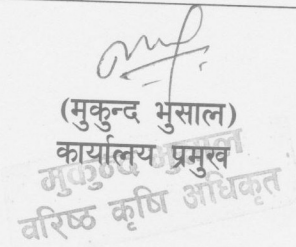 (मुकुन्द भुसाल)
कार्यालय प्रमुख
मुकुन्द भुसाल
वरिष्ठ कृषि अधिकृत